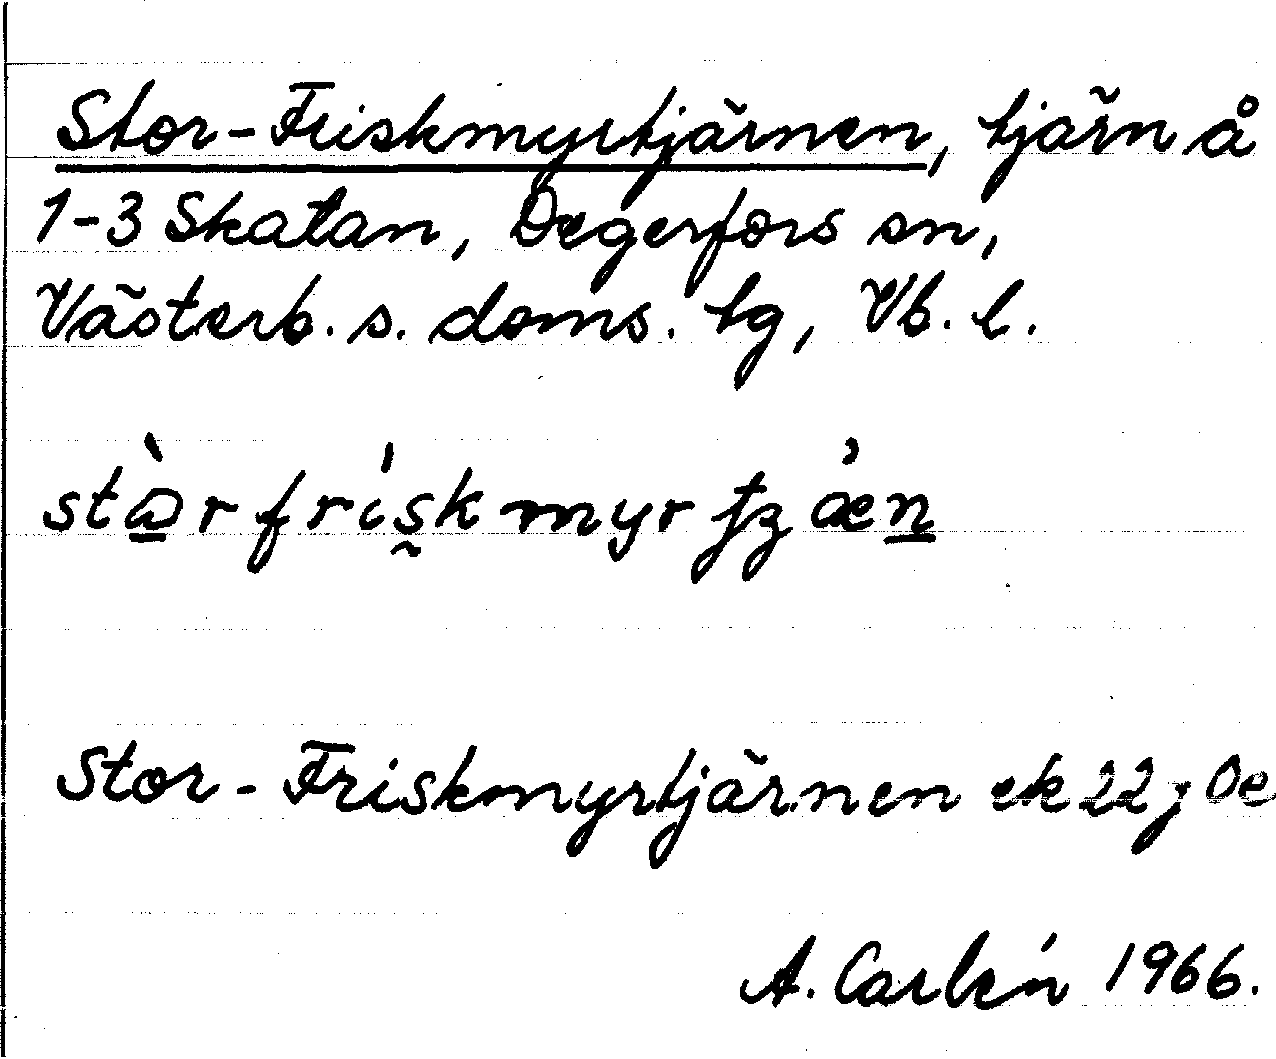 Stor-Friskmyrtjärnen, tjärn å
1-3 Skatan, Degerfors sn,
Västerb. s. doms. tg, Vb. l.
Stor-Friskmyrtjärnen ek 22j De
A. Carlén 1966.